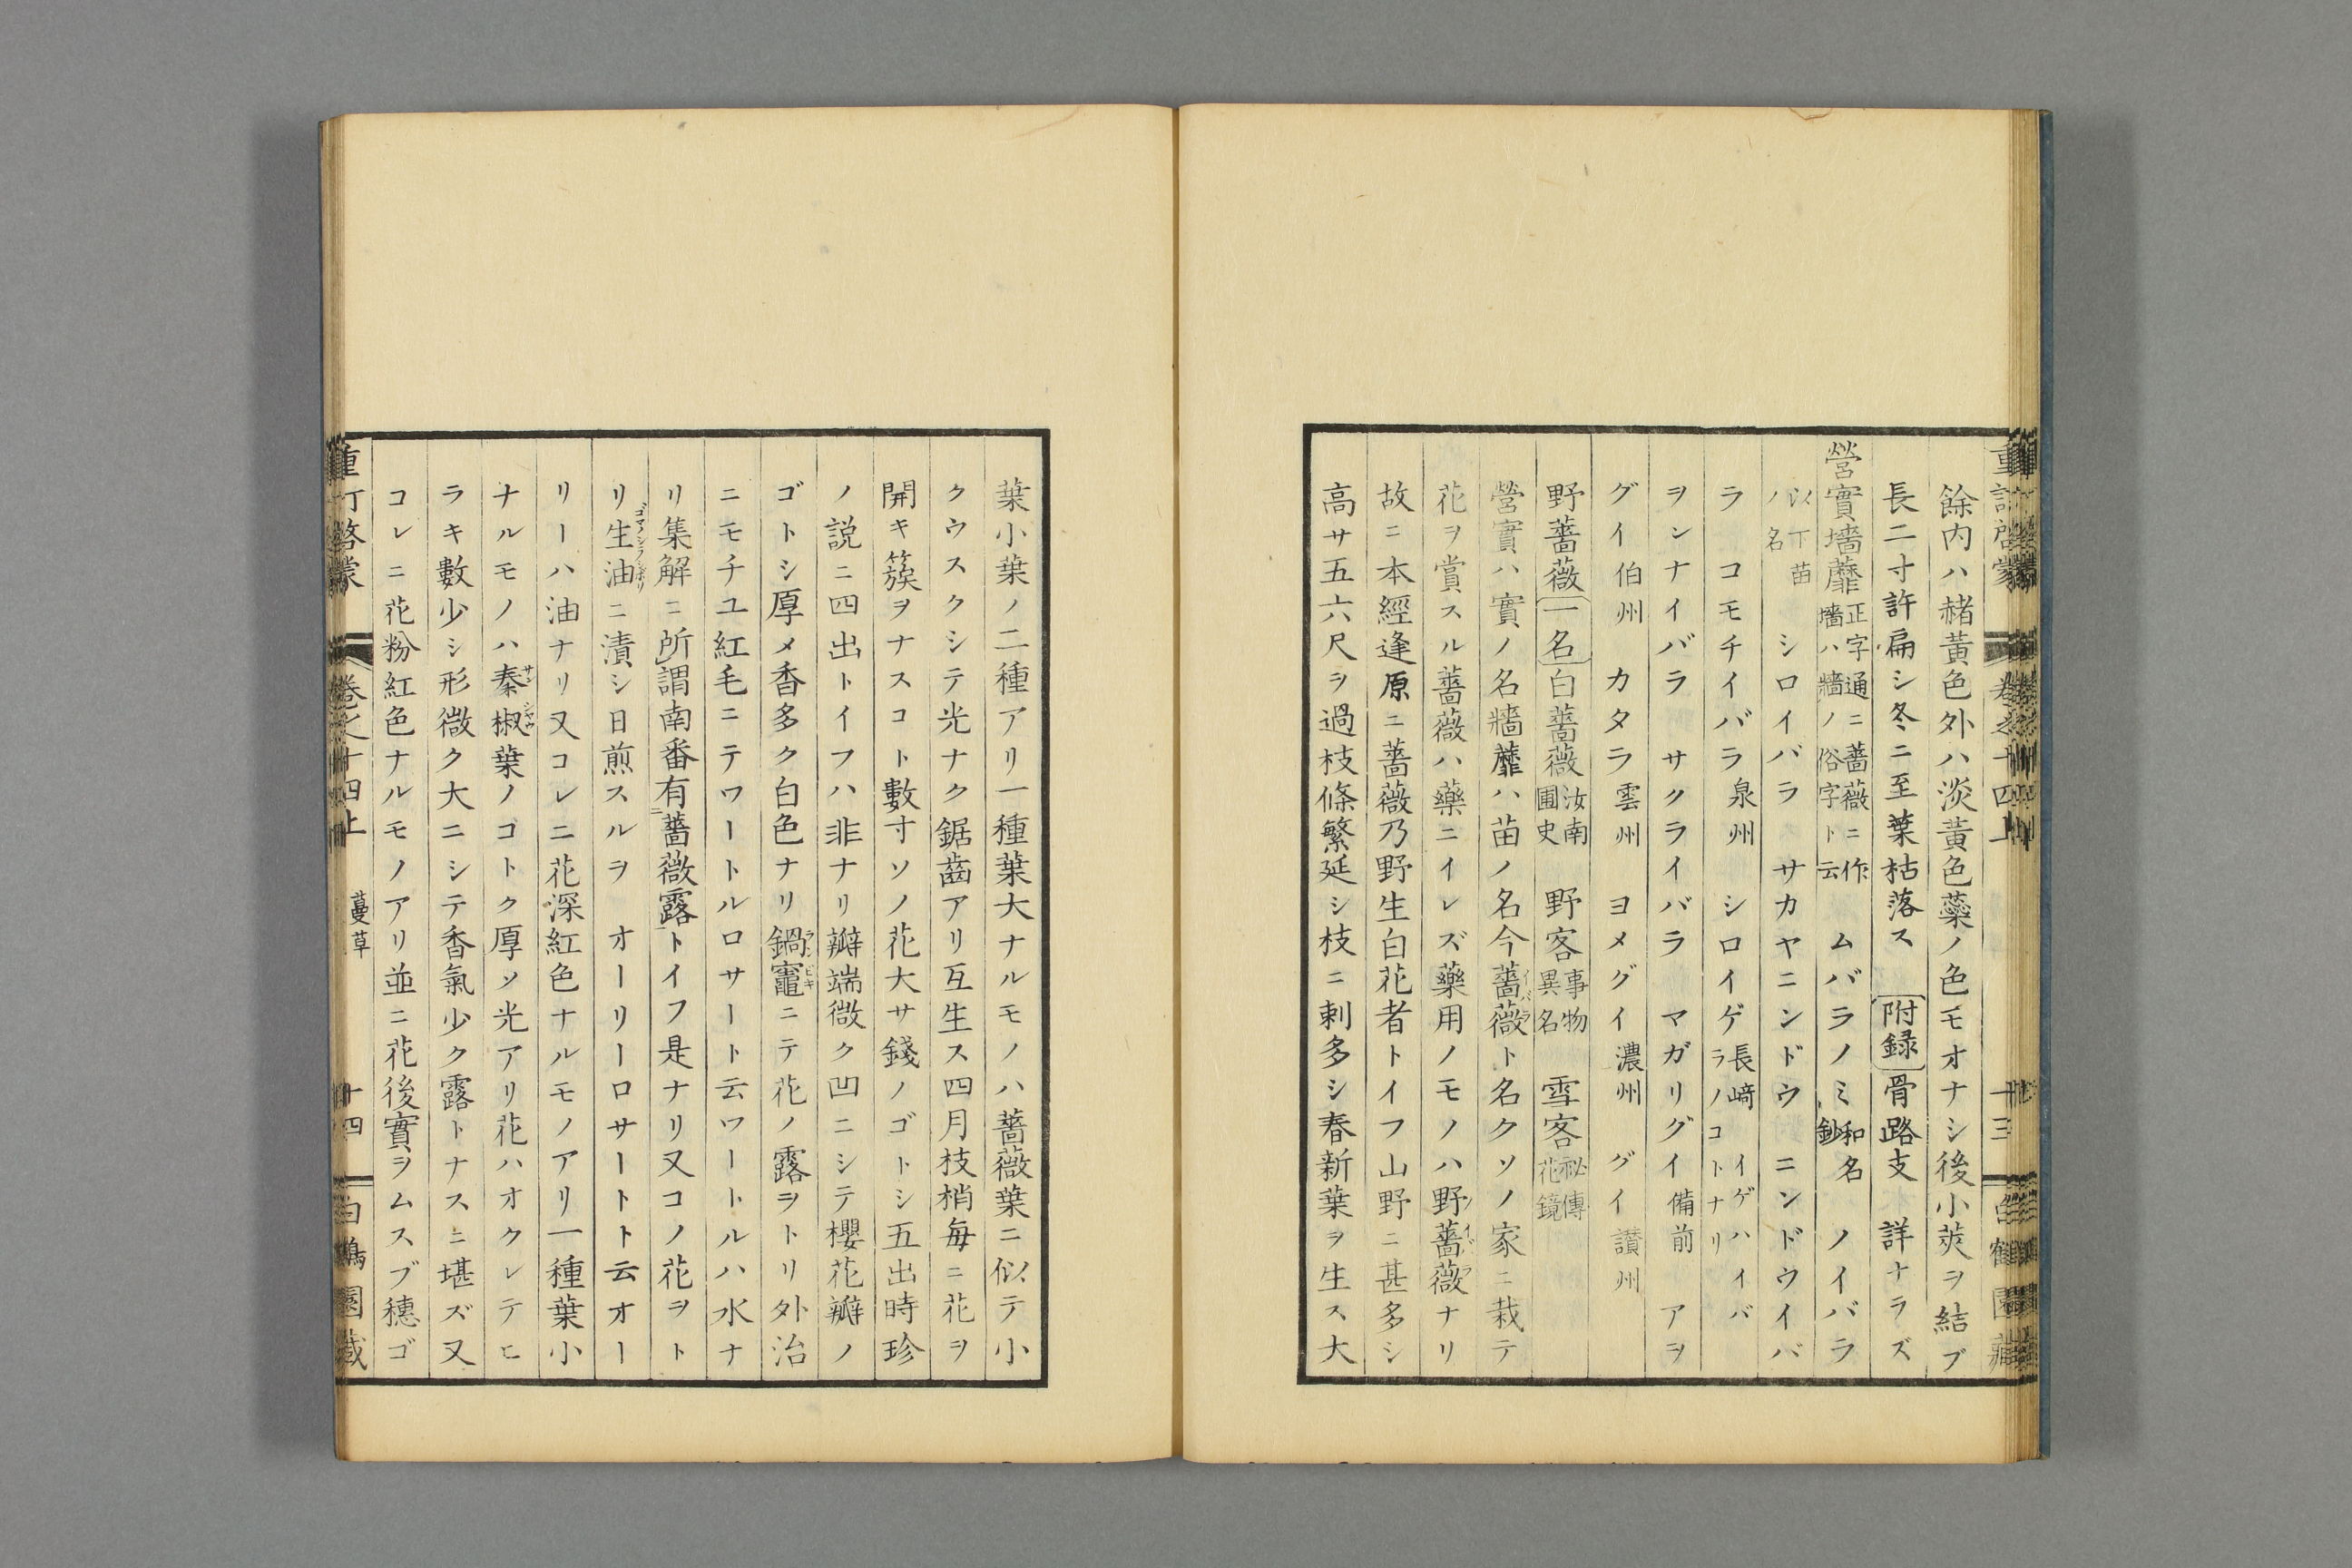 餘内ハ赭黄色外ハ淡黄色蘂ノ色モオナシ後小莢ヲ結ブ
長二寸許扁シ冬ニ至葉枯落ス 附録 骨路支 詳ナラズ
營實墻蘼 正字通ニ薔薇ニ作 墻ハ牆ノ俗字ト云 ムバラノミ 和名鈔 ノイバラ
以下苗ノ名 シロイバラ サカヤニンドウ ニンドウイバ
ラ コモチイバラ 泉州 シロイゲ 長﨑 イゲハイバラノコトナリ
ヲンナイバラ サクライバラ マガリグイ 備前 アヲ
グイ 伯州 カタラ 雲州 ヨメグイ 濃州 グイ 讃州
野薔薇 一名 白薔薇 汝南圃史 野客 事物異名 雪客 祕傳花鏡
營實ハ實ノ名牆蘼ハ苗ノ名今薔薇ト名クソノ家ニ栽テ
花ヲ賞スル薔薇ハ藥ニイレズ藥用ノモノハ野薔薇ナリ
故ニ本經逢原ニ薔薇乃野生白花者トイフ山野ニ甚多シ
高サ五六尺ヲ過枝條繁延シ枝ニ刺多シ春新葉ヲ生ス大
葉小葉ノ二種アリ一種葉大ナルモノハ薔薇葉ニ似テ小
クウスクシテ光ナク鋸齒アリ互生ス四月枝梢毎ニ花ヲ
開キ簇ヲナスコト數寸ソノ花大サ錢ノゴトシ五出時珍
ノ説ニ四出トイフハ非ナリ瓣端微ク凹ニシテ櫻花瓣ノ
ゴトシ厚メ香多ク白色ナリ鍋竈ニテ花ノ露ヲトリ外治
ニモチユ紅毛ニテワートルロサート云ワートルハ水ナ
リ集解ニ所謂南番有薔薇露トイフ是ナリ又コノ花ヲト
リ生油ニ漬シ日煎スルヲ オーリーロサートト云オー
リーハ油ナリ又コレニ花深紅色ナルモノアリ一種葉小
ナルモノハ秦椒葉ノコトク厚ソ光アリ花ハオクレテヒ
ラキ數少シ形微ク大ニシテ香氣少ク露トナスニ堪ズ又
コレニ花粉紅色ナルモノアリ並ニ花後實ヲムスブ穗ゴ
重訂啓蒙 卷之十四上 蔓草 十四